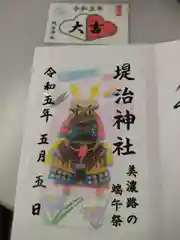 令和五年
大吉
堤治神社
美濃路の
端午祭
令和五年 五月 五日